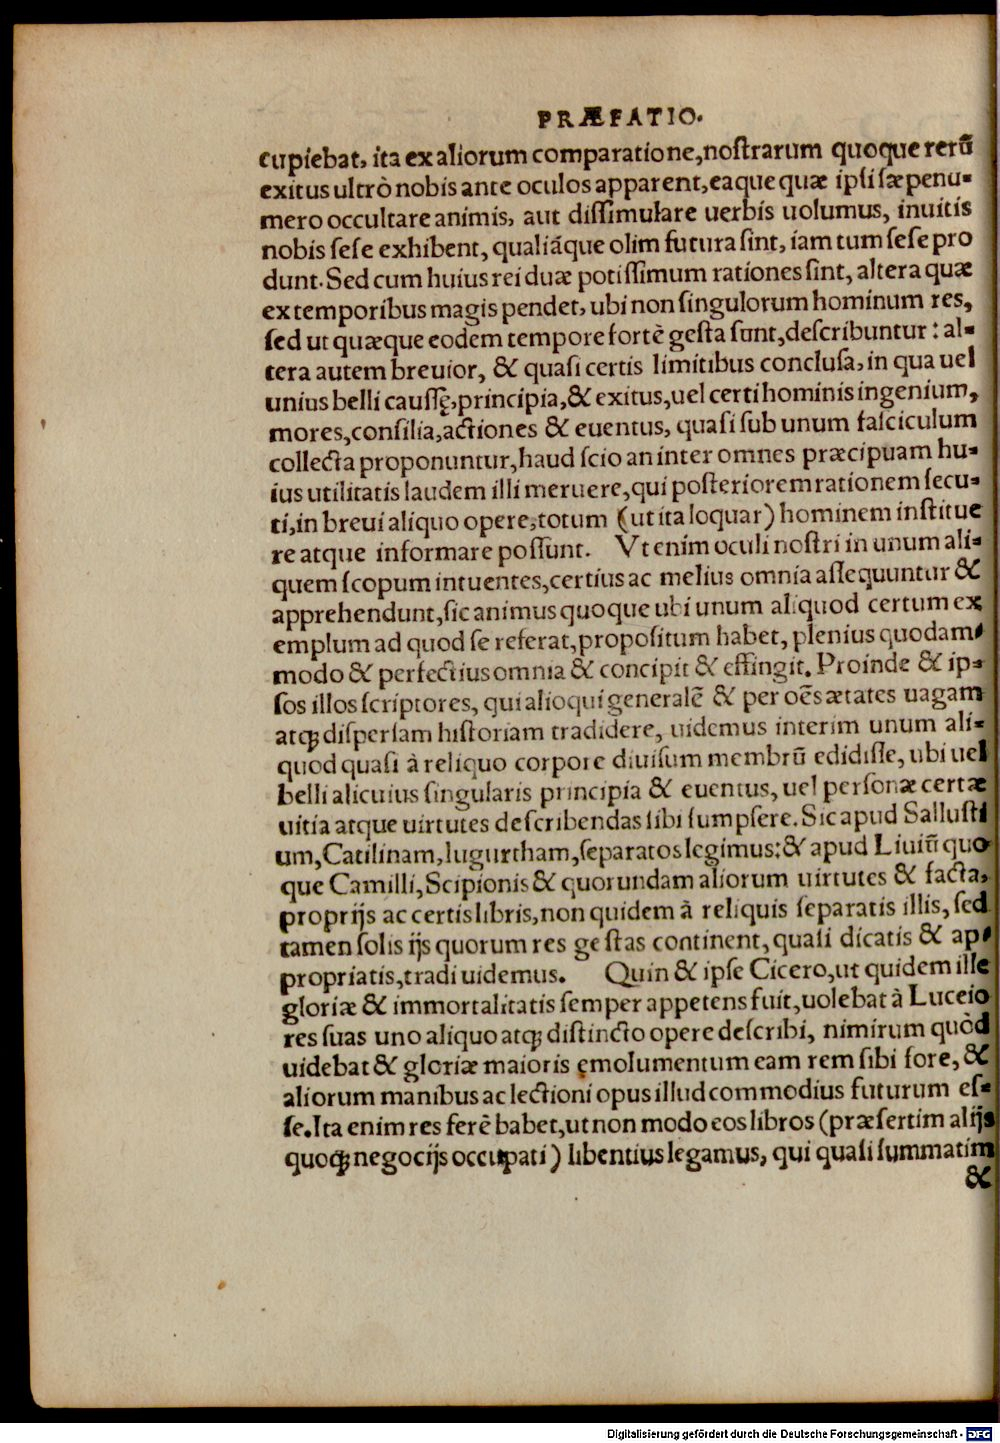 PRÆFATIO.
cupiebat, ita ex aliorum comparatione, nostrarum quoque rerũ
exitus ultrò nobis ante oculos apparent, eaque quæ ipsi sæpenu-
mero occultare animis, aut dissimulare uerbis uolumus, inuitis
nobis sese exhibent, qualiáque olim futura sint, iam tum sese pro
dunt. Sed cum huius rei duæ potissimum rationes sint, altera quæ
ex temporibus magis pendet, ubi non singulorum hominum res,
sed ut quæque eodem tempore fortè gesta sunt, describuntur: al-
tera autem breuior, & quasi certis limitibus conclusa, in qua uel
unius belli caussę, principia, & exitus, uel certi hominis ingenium,
mores, consilia, actiones & euentus, quasi sub unum fasciculum
collecta proponuntur, haud scio an inter omnes præcipuam hu-
ius utilitatis laudem illi meruere, qui posteriorem rationem secu-
ti, in breui aliquo opere, totum (ut ita loquar) hominem institue
re atque informare possunt. Vt enim oculi nostri in unum ali-
quem scopum intuentes, certius ac melius omnia assequuntur &
apprehendunt, sic animus quoque ubi unum aliquod certum ex
emplum ad quod se referat, propositum habet, plenius quodam-
modo & perfectius omnia & concipit & effingit. Proinde & ip-
sos illos scriptores, qui alioqui generalẽ & per oẽs ætates uagam
atq; dispersam historiam tradidere, uidemus interim unum ali-
quod quasi à reliquo corpore diuisum membrũ edidisse, ubi uel
belli alicuius singularis principia & euentus, uel personæ certæ
uitia atque uirtutes describendas sibi sumpsere. Sic apud Sallusti
um, Catilinam, Iugurtham, separatos legimus: & apud Liuiũ quo
que Camilli, Scipionis & quorundam aliorum uirtutes & facta,
proprijs ac certis libris, non quidem à reliquis separatis illis, sed
tamen solis ijs quorum res gestas continent, quasi dicatis & ap-
propriatis, tradi uidemus. Quin & ipse Cicero, ut quidem ille
gloriæ & immortalitatis semper appetens fuit, uolebat à Luceio
res suas uno aliquo atq; distincto opere describi, nimirum quòd
uidebat & gloriæ maioris emolumentum eam rem sibi fore, &
aliorum manibus ac lectioni opus illud commodius futurum es-
se. Ita enim res ferè habet, ut non modo eos libros (præsertim alijs
quoq; negocijs occupati) libentius legamus, qui quasi summatim
&
Digitalisierung gefördert durch die Deutsche Forschungsgemeinschaft - DFG